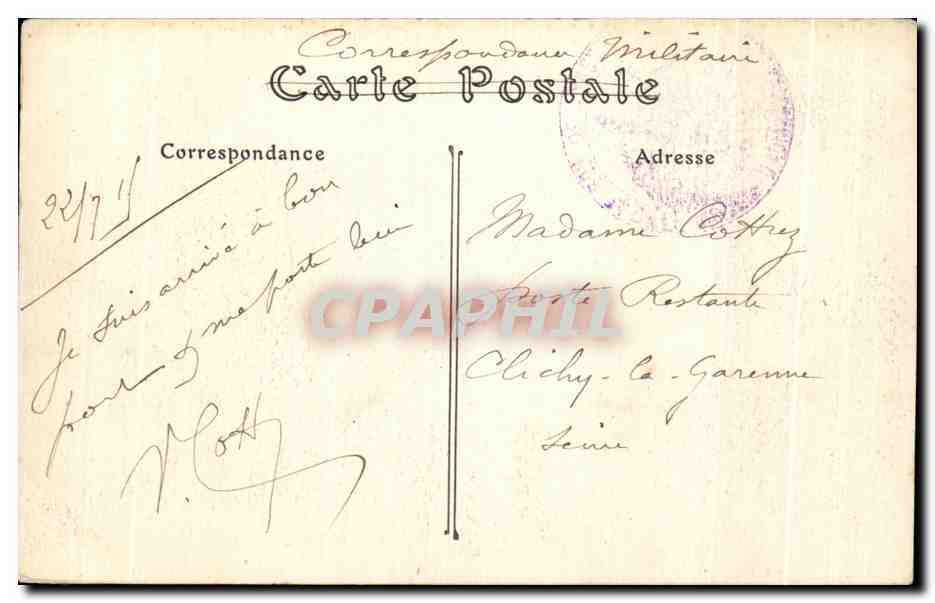 Correspondance Militaire
Carte Postale
Correspondance
Adresse
22/7 15
Je suis arrivé à bon
port & me porte bien
Madame Cottrez
Poste Restante
Clichy-la-Garenne
Seine
CPAPHIL